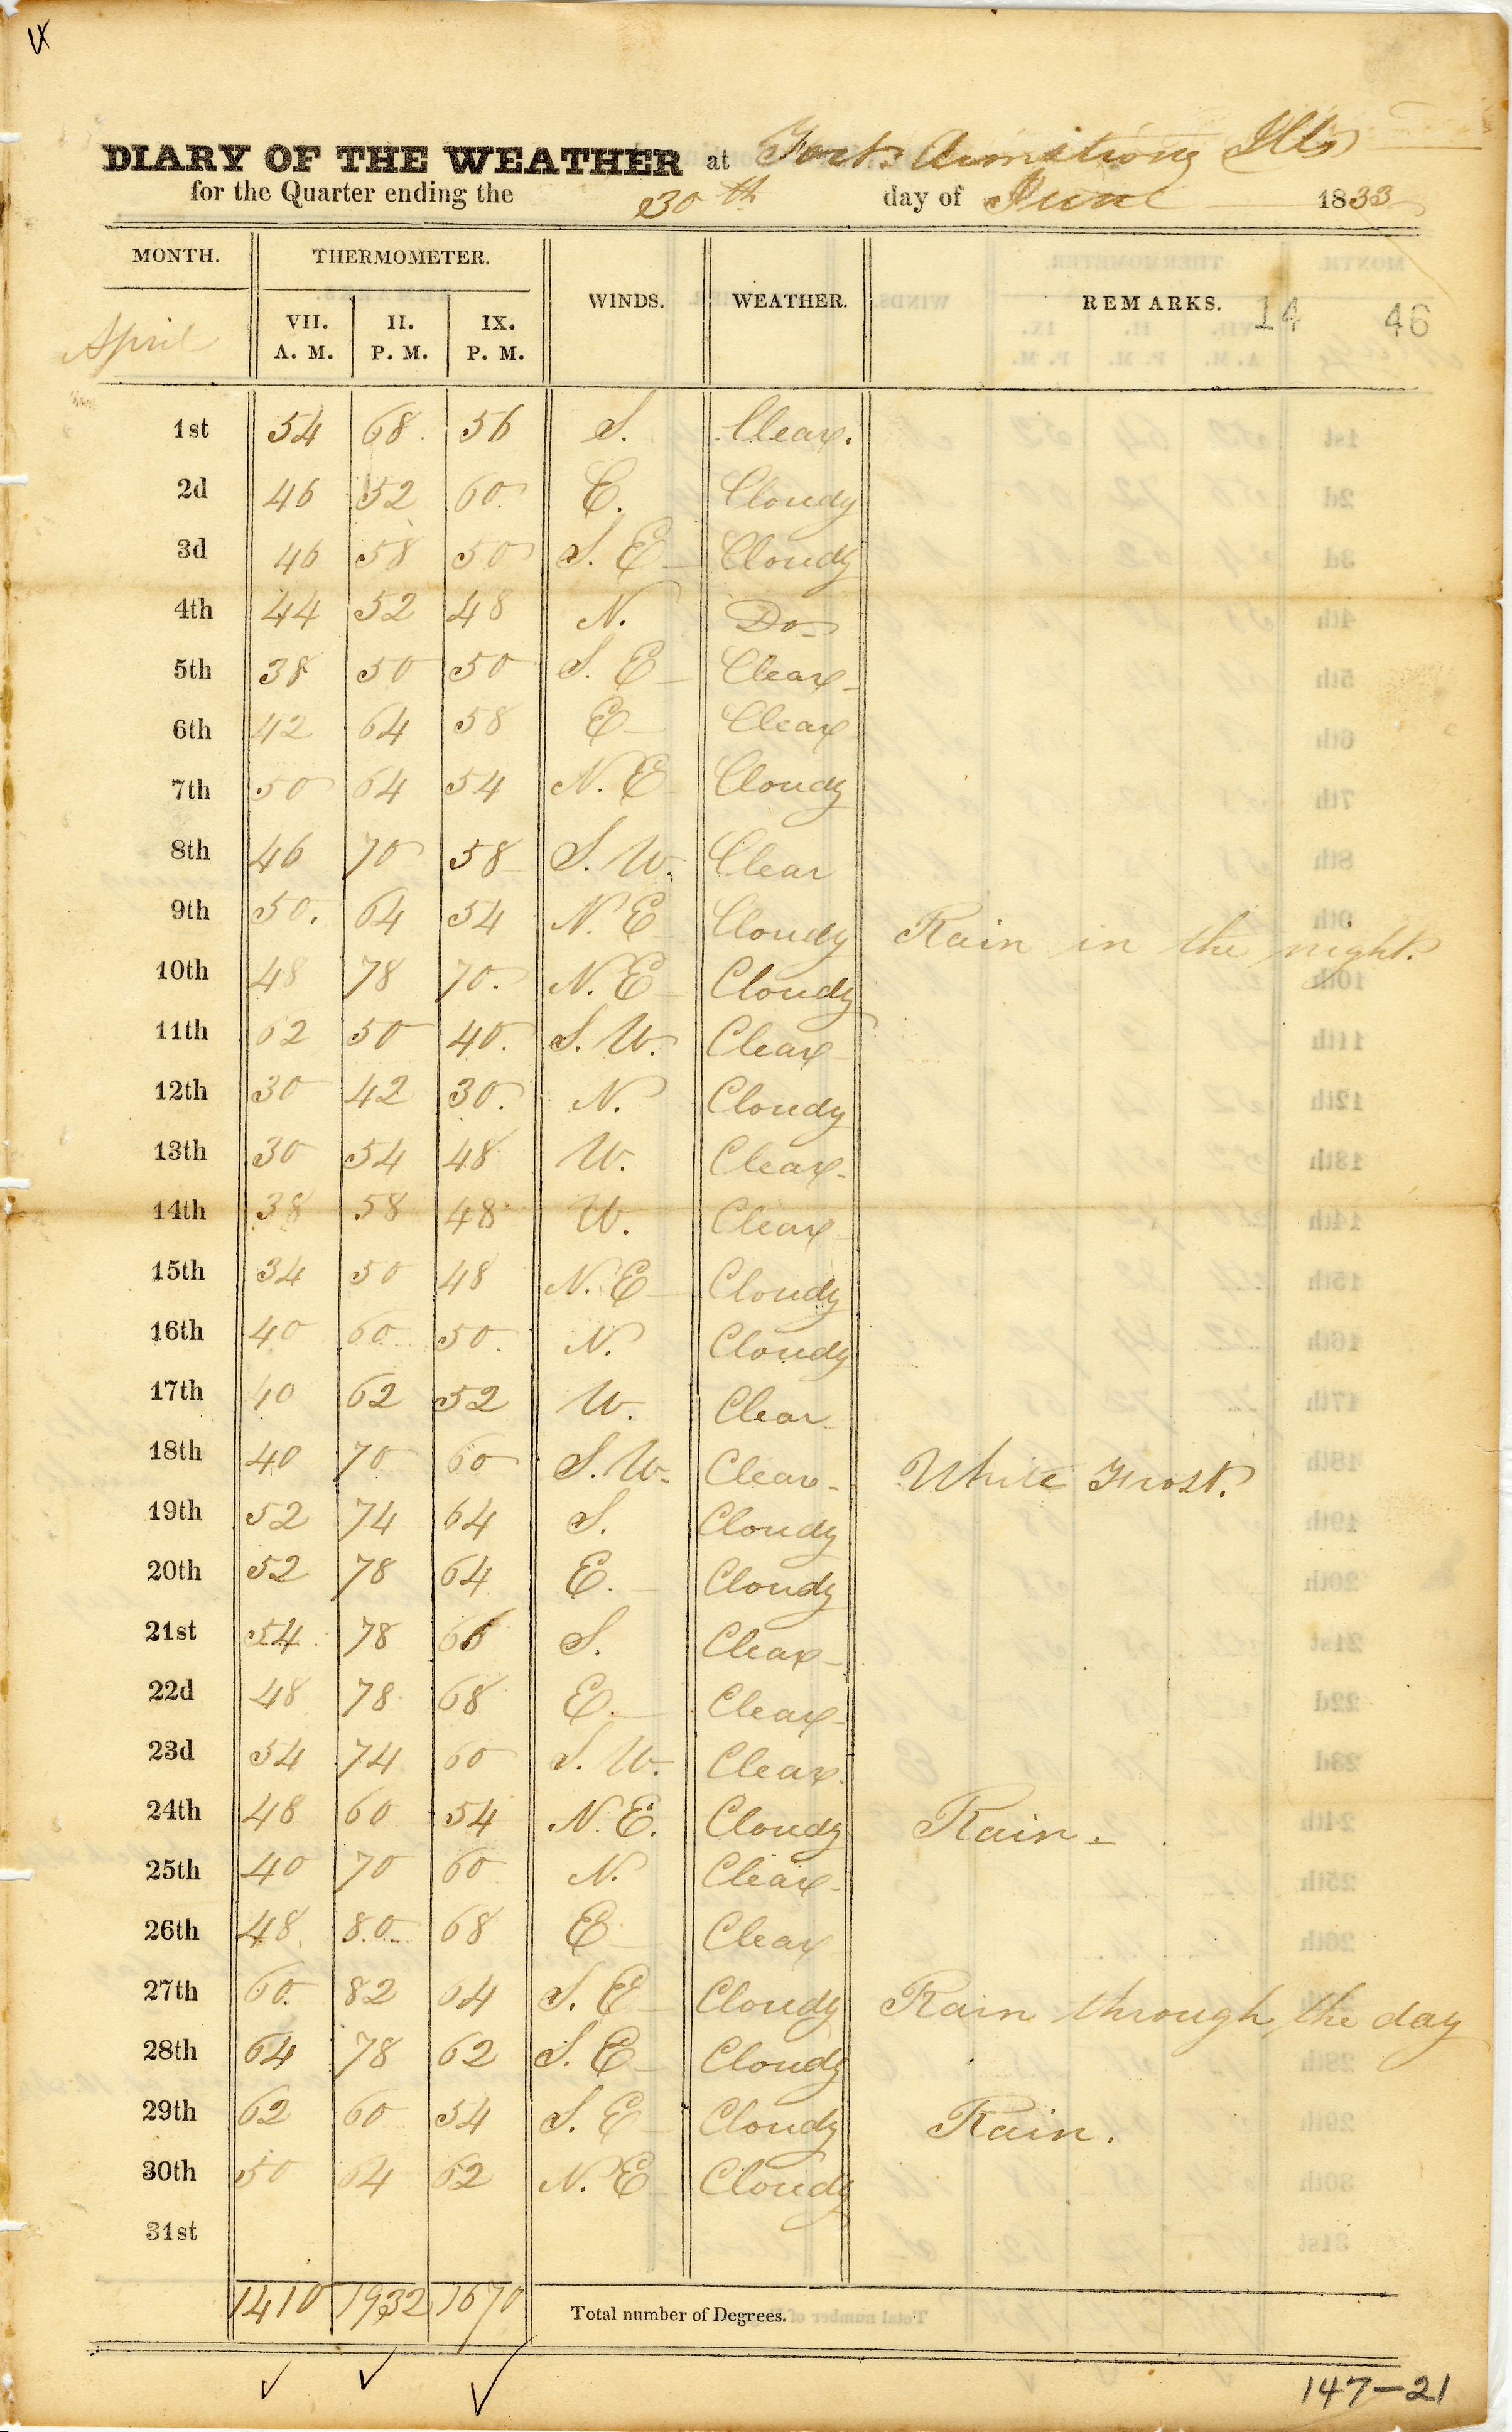 DIARY OF THE WEATHER at Fort Armstrong Ills
for the Quarter ending the 30th day of June 1833
MONTH. THERMOMETER. WINDS. WEATHER. REMARKS. 14 46
April VII. A. M. II. P. M. IX. P. M.
1st 54 68. 56 S. Clear.
2d 46 52 60. E. Cloudy
3d 46 58 50 S. E Cloudy
4th 44 52 48 N. Do
5th 38 50 50 S. E Clear
6th 42 64 58 E Clear
7th 50 64 54 N. E Cloudy
8th 46 70 58 S. W. Clear
9th 50. 64 54 N. E Cloudy Rain in the night.
10th 48 78 70. N. E Cloudy
11th 62 50 40. S. W. Clear
12th 30 42 30. N. Cloudy
13th 30 54 48 W. Clear
14th 38 58 48 W. Clear
15th 34 50 48 N. E Cloudy
16th 40 60 50. N. Cloudy
17th 40 62 52 W. Clear
18th 40 70 60 S. W. Clear White Frost.
19th 52 74 64 S. Cloudy
20th 52 78 64 E. Cloudy
21st 54 78 66 S. Clear
22d 48 78 68 E. Clear
23d 54 74 60 S. W. Clear
24th 48 60 54 N. E. Cloudy Rain
25th 40 70 60 N. Clear
26th 48 80 68 E Clear
27th 60. 82 64 S. E Cloudy Rain through the day
28th 64 78 62 S. E Cloudy
29th 62 60 54 S. E Cloudy Rain.
30th 50 64 62 N. E Cloudy
31st
1410 1932 1670 Total number of Degrees.
147-21